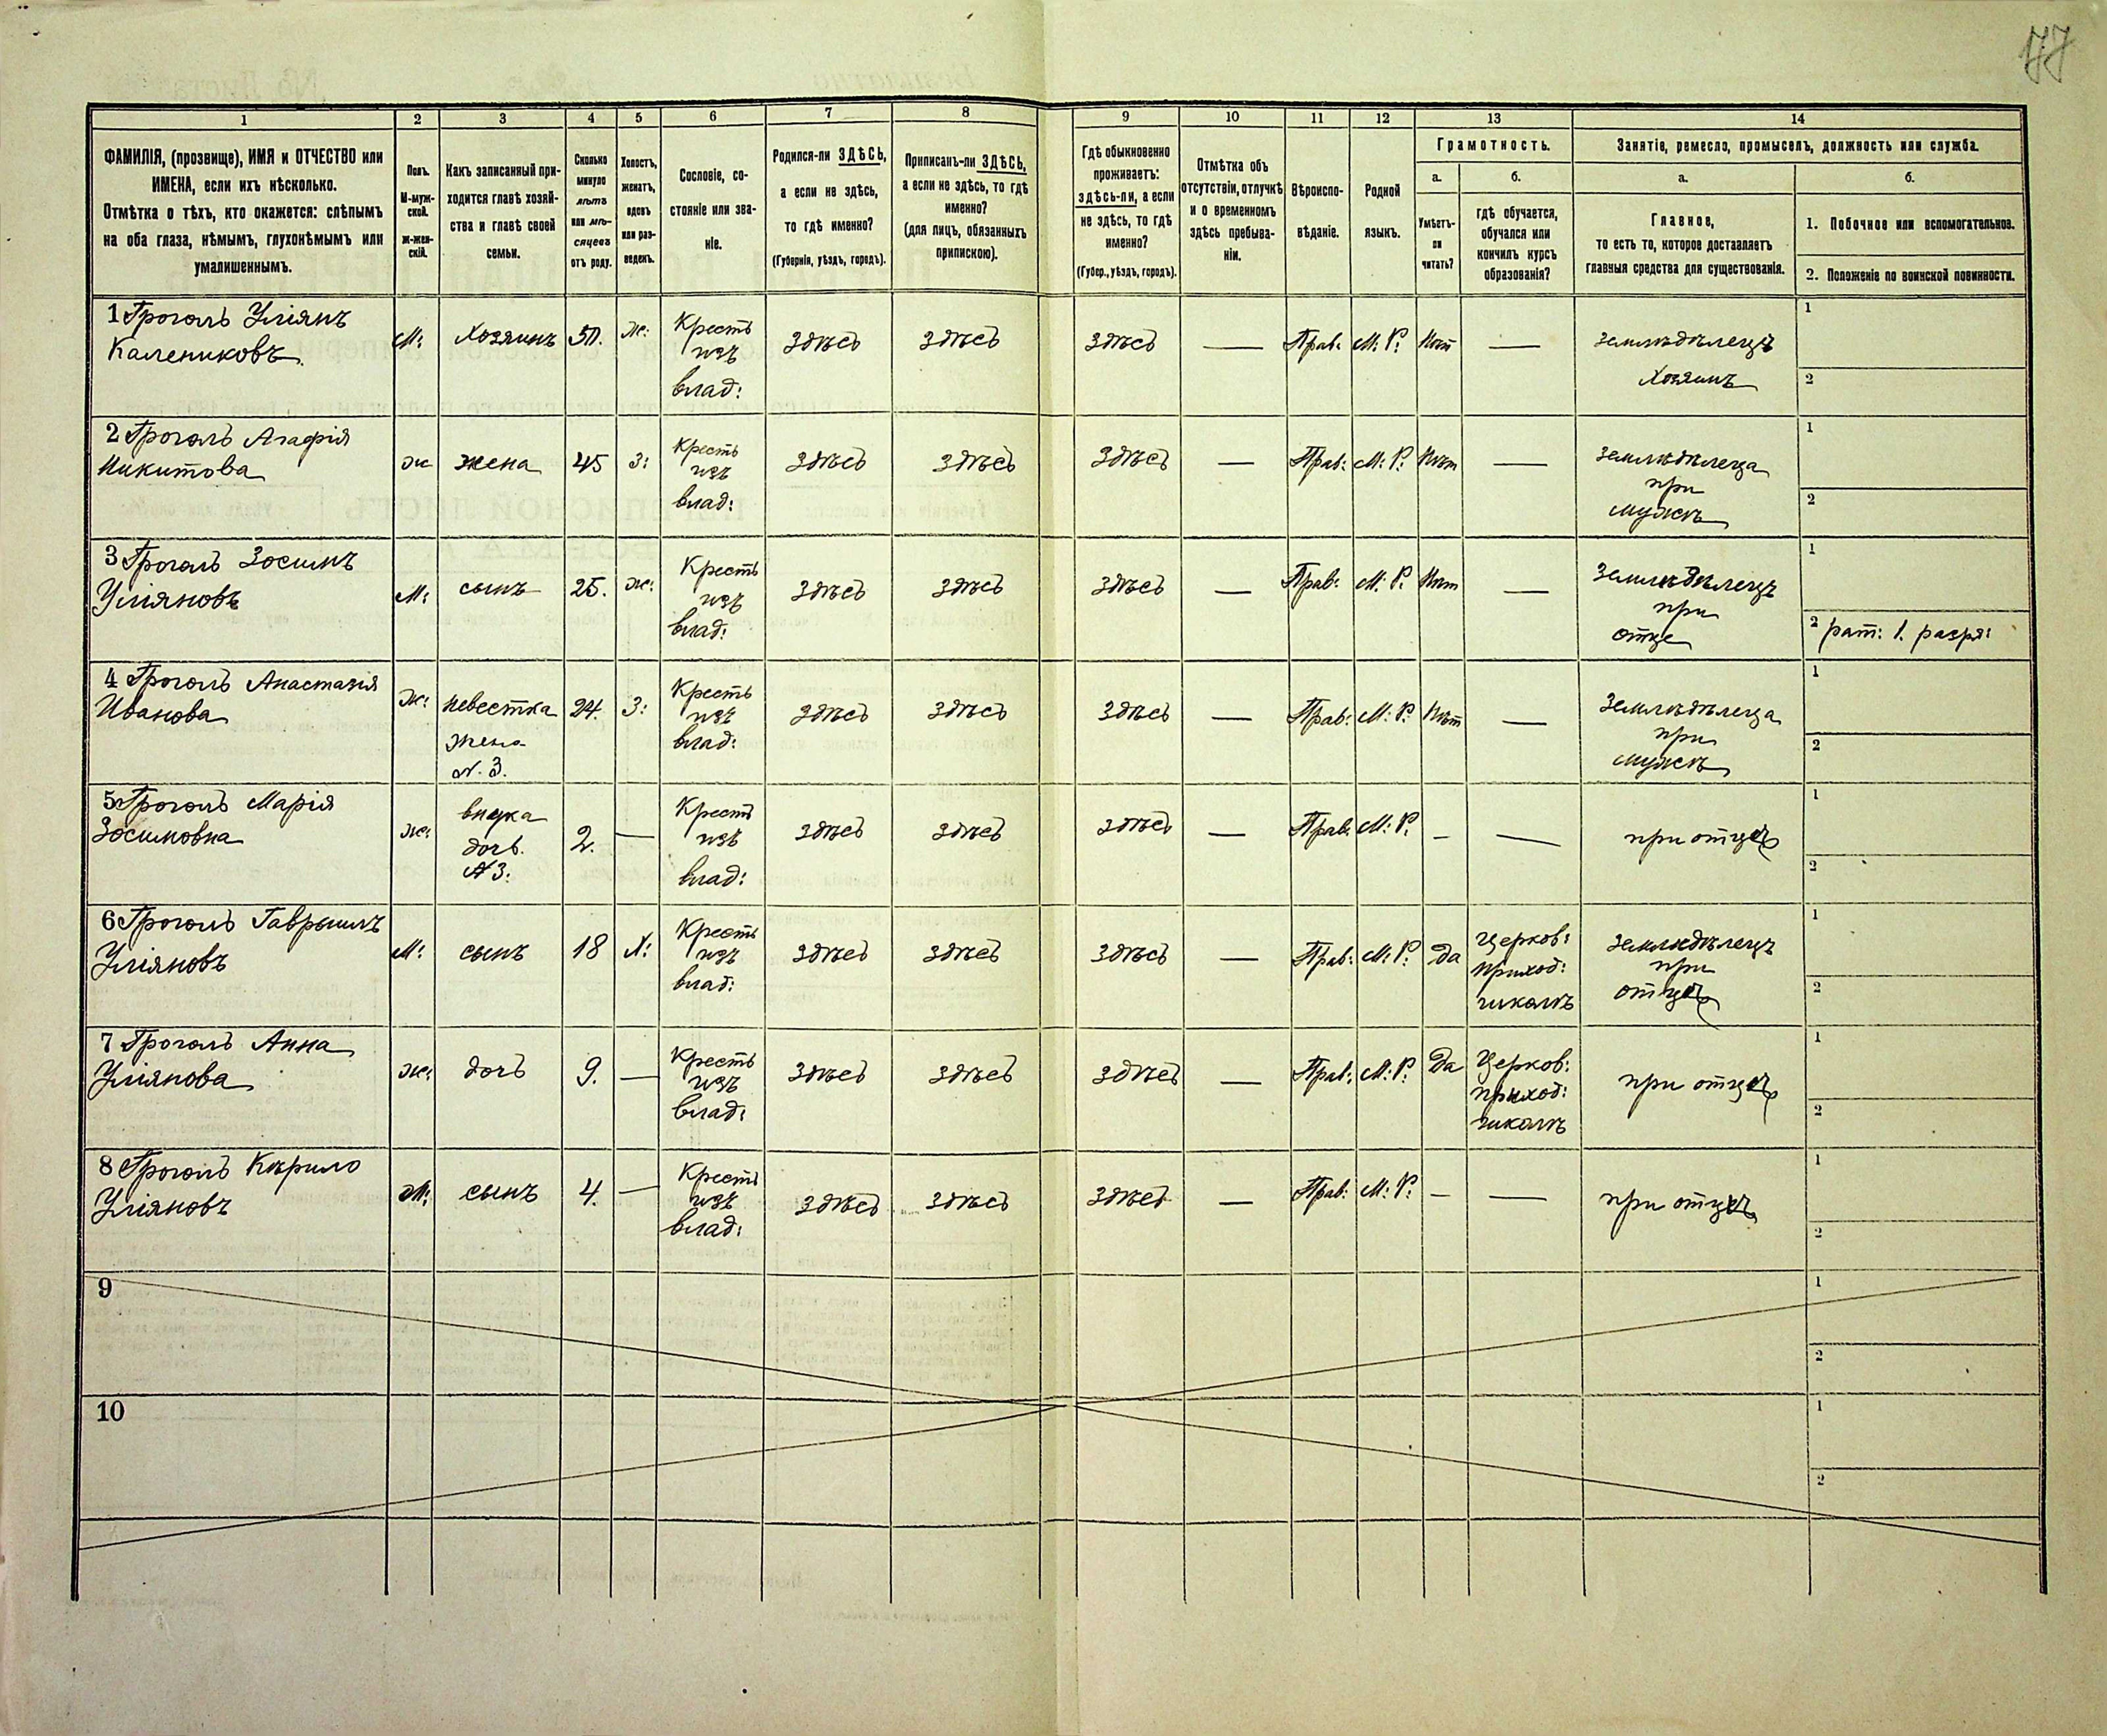 177
1
2
3
4
5
6
7
8
9
10
11
12
13
14
ФАМИЛІЯ, (прозвище), ИМЯ и ОТЧЕСТВО или
ИМЕНА, если ихъ нѣсколько.
Отмѣтка о тѣхъ, кто окажется: слѣпымъ
на оба глаза, нѣмымъ, глухонѣмымъ или
умалишеннымъ.
Полъ.
М-муж-
ской.
ж-жен-
скій.
Какъ записанный при-
ходится главѣ хозяй-
ства и главѣ своей
семьи.
Сколько
минуло
лѣтъ
или мѣ-
сяцевъ
отъ роду.
Холостъ,
женатъ,
вдовъ
или раз-
веденъ.
Сословіе, со-
стояніе или зва-
ніе.
Родился-ли ЗДѢСЬ,
а если не здѣсь,
то гдѣ именно?
(Губернія, уѣздъ, городъ).
Приписанъ-ли ЗДѢСЬ,
а если не здѣсь, то гдѣ
именно?
(для лицъ, обязанныхъ
припискою).
Гдѣ обыкновенно
проживаетъ:
здѣсь-ли, а если
не здѣсь, то гдѣ
именно?
(Губер., уѣздъ, городъ).
Отмѣтка объ
отсутствіи, отлучкѣ
и о временномъ
здѣсь пребыва-
ніи.
Вѣроиспо-
вѣданіе.
Родной
языкъ.
Грамотность.
а.
Умѣетъ-
ли
читать?
б.
гдѣ обучается,
обучался или
кончилъ курсъ
образованія?
Занятіе, ремесло, промыселъ, должность или служба.
а.
Главное,
то есть то, которое доставляетъ
главныя средства для существованія.
б.
1. Побочное или вспомогательное.
2. Положеніе по воинской повинности.
1 Гроголь Уліянъ
Калениковъ
М: Хозяинъ 50. ж: Кресть изъ влад: здѣсь здѣсь здѣсь — Прав: М: Р: Нѣт — земледѣлецъ Хозяинъ 1 2
2 Гроголь Агафія
Никитова
ж жена 45 З: Кресть изъ влад: здѣсь здѣсь здѣсь — Прав: М: Р: Нѣт — земледѣлеца при мужѣ 1 2
3 Гроголь Зосимъ
Уліяновъ
М: сынъ 25. ж: Кресть изъ влад: здѣсь здѣсь здѣсь — Прав: М: Р: Нѣт — земледѣлецъ при отце 1 2 рат: 1. разря:
4 Гроголь Анастазія
Иванова
ж: невестка жена N. 3. 24. З: Кресть изъ влад: здѣсь здѣсь здѣсь — Прав: М: Р: Нѣт — земледѣлеца при мужѣ 1 2
5 Гроголь Марія
Зосимовна
ж: внука дочь N 3: 2. — Кресть изъ влад: здѣсь здѣсь здѣсь — Прав: М: Р: — — при отцѣ 1 2
6 Гроголь Гаврыилъ
Уліяновъ
М: сынъ 18 Х: Кресть изъ влад: здѣсь здѣсь здѣсь — Прав: М: Р: да церков: приход: школѣ земледѣлецъ при отцѣ 1 2
7 Гроголь Анна
Уліянова
ж: дочь 9. — Кресть изъ влад: здѣсь здѣсь здѣсь — Прав: М: Р: Да Церков: приход: школѣ при отцѣ 1 2
8 Гроголь Кирило
Уліяновъ
М: сынъ 4. — Кресть изъ влад: здѣсь здѣсь здѣсь — Прав: М: Р: — — при отцѣ 1 2
9 1 2
10 1 2